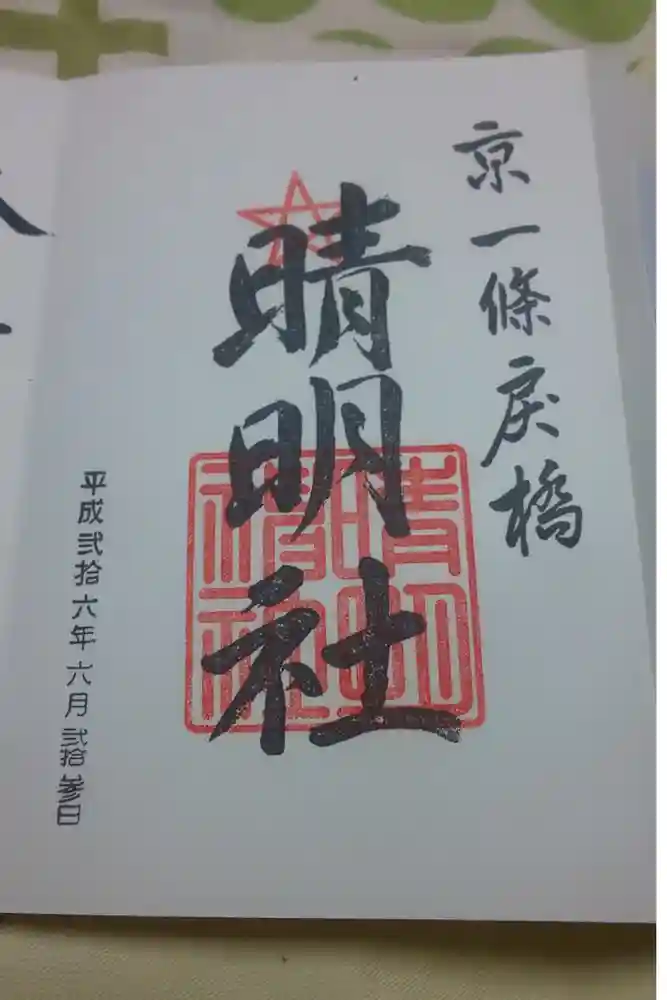 京一條戻橋
晴明社
平成弐拾六年六月弐拾参日